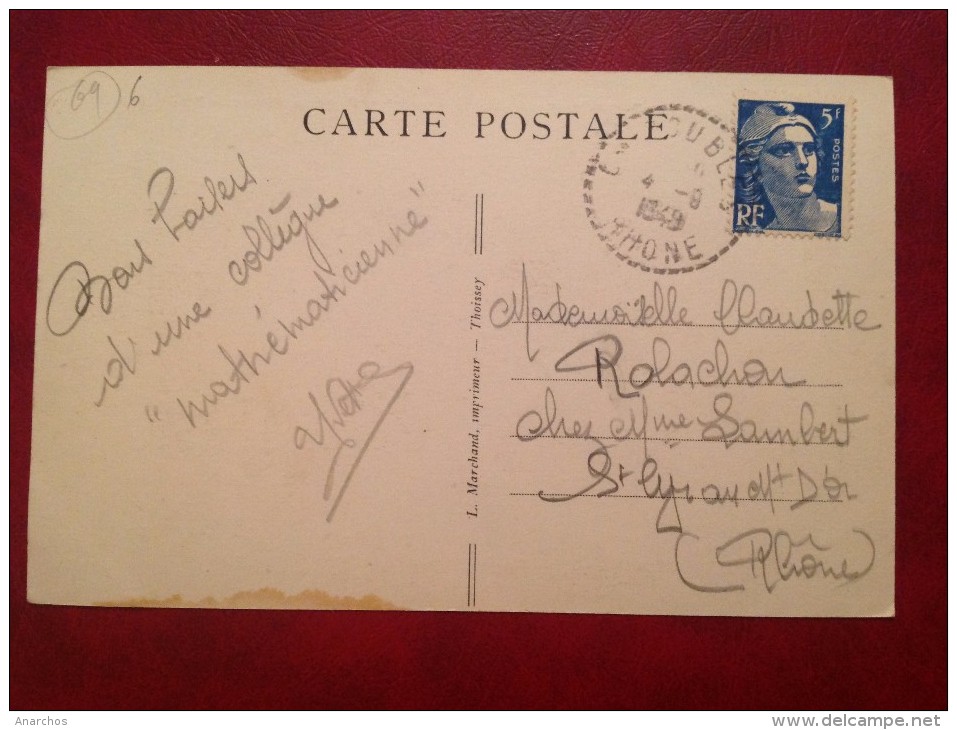 69 6
CARTE POSTALE
5F
POSTES
RF
4 -9
1949
RHONE
Bons baisers
d'une collègue
"mathématicienne"
Yvette
L. Marchand, imprimeur — Thoissey
Mademoiselle Claudette
Rolachon
chez Mme Lambert
St Cyr au Mt D'or
(Rhône)
Anarchos
www.delcampe.net